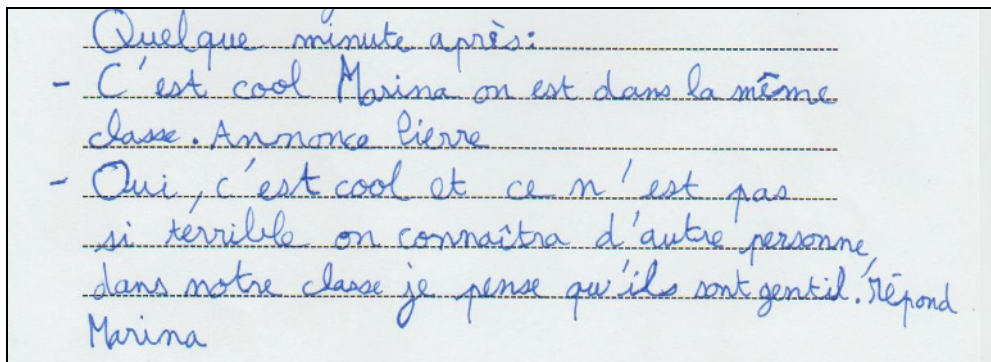 Quelque minute après :
- C'est cool Marina on est dans la même
classe. Annonce Pierre
- Oui, c'est cool et ce n'est pas
si térrible on connaîtra d'autre personne,
dans notre classe je pense qu'ils sont gentil. Répond
Marina